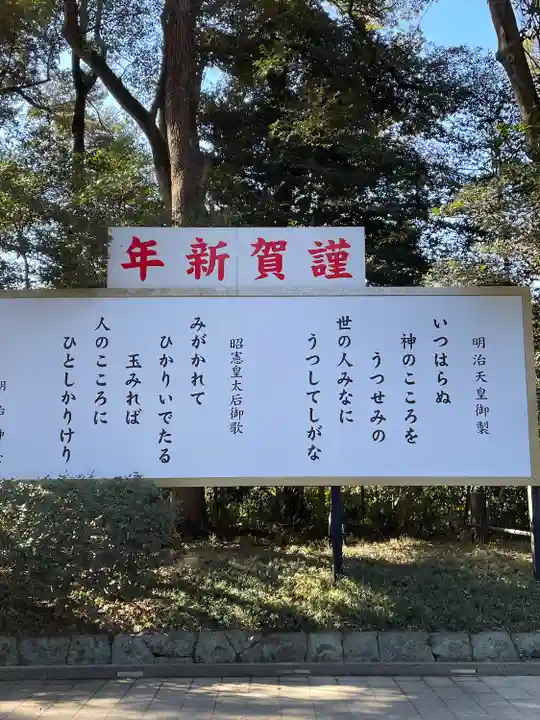 謹賀新年
明治天皇御製
いつはらぬ
神のこころを
うつせみの
世の人みなに
うつしてしがな
昭憲皇太后御歌
みがかれて
ひかりいでたる
玉みれば
人のこころに
ひとしかりけり
明治神宮